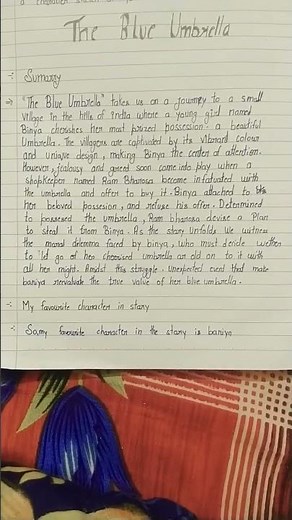 The Blue Umbrella
:- Summary
→ "The Blue Umbrella" takes us on a journey to a small
village in the hills of India where a young girl named
Binya cherishes her most prized possession - a beautiful
Umbrella. The villagers are captivated by its vibrant colour
and unique design, making Binya the center of attention.
However, jealousy and greed soon come into play when a
shopkeeper named Ram Bharosa become infatuated with
the umbrella and offer to buy it. Binya attached to
her beloved possesion, and refuse his offer. Determined
to possessed the umbrella, Ram bharosa devise a Plan
to steal it from Binya. As the story Unfolds we witness
the moral dilemma faced by binya, who must decide wether
to let go of her cherished umbrella an old on to it with
all her might. Amidst this struggle. Unexpected event that make
baniya reevaluate the true value of her blue umbrella.
:- My favourite character in story
:- So, my favourite character in the story is baniya